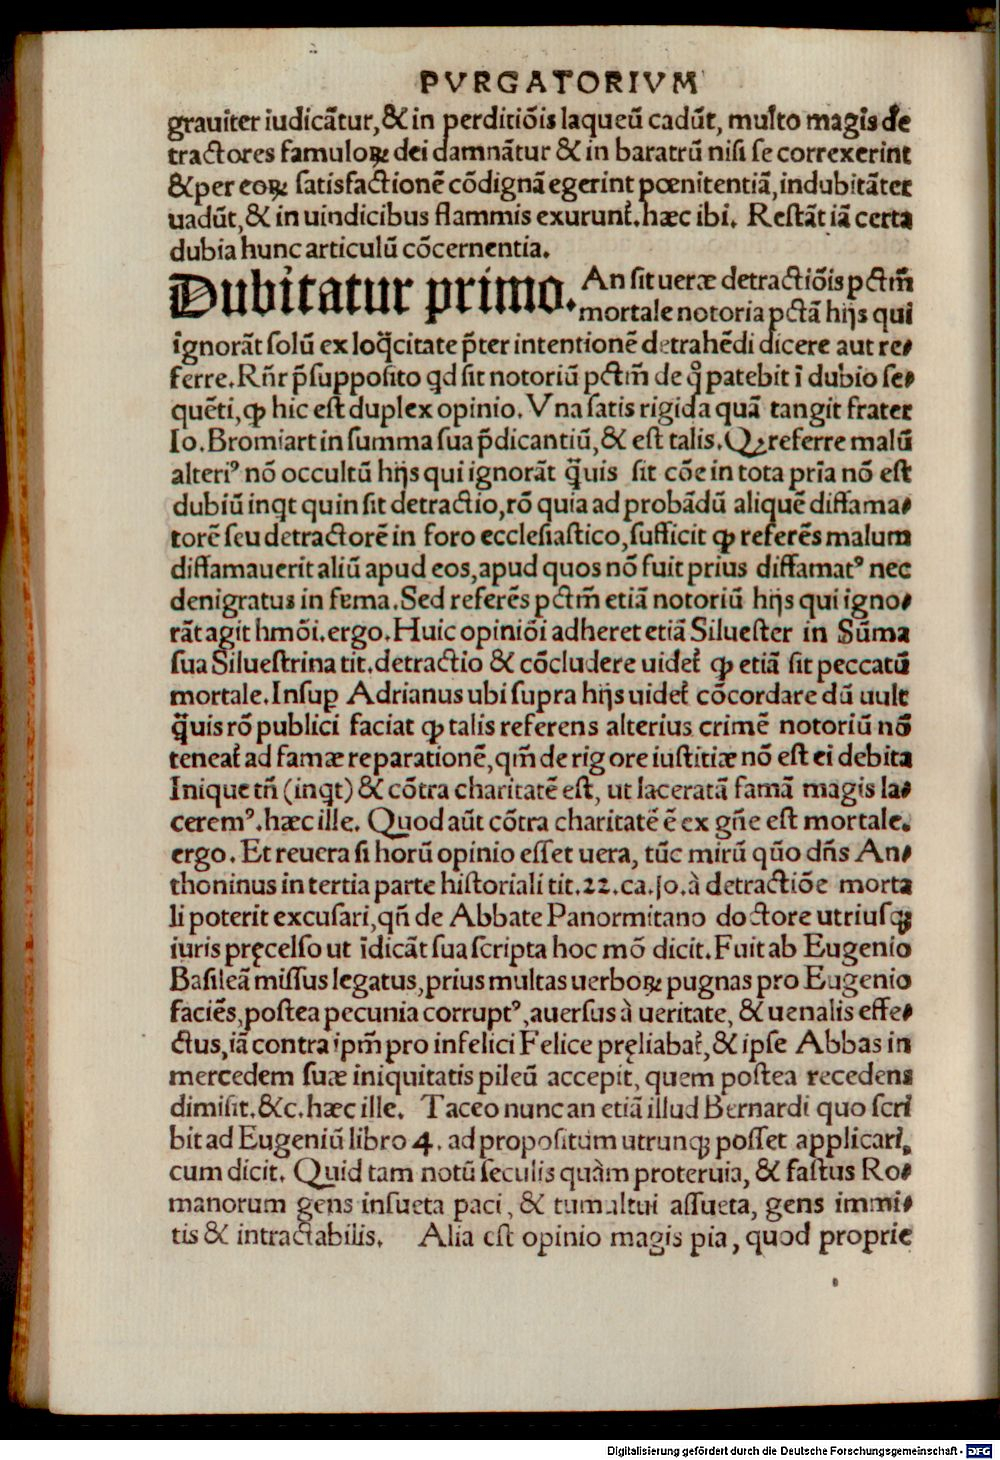 PVRGATORIVM
grauiter iudicãtur, & in perditiõis laqueũ cadũt, multo magis de
tractores famuloꝝ dei damnãtur & in baratrũ nisi se correxerint
& per eoꝝ satisfactionẽ cõdignã egerint pœnitentiã, indubitãter
uadũt, & in uindicibus flammis exurunt᷑. hæc ibi. Restãt iã certa
dubia hunc articulũ cõcernentia.
Dubitatur primo. An sit ueræ detractiõis pctm̃
mortale notoria pctã hijs qui
ignorãt solũ ex loq̃citate p̃ter intentionẽ detrahẽdi dicere aut re⸗
ferre. Rñr p̃supposito qd sit notoriũ pctm̃ de quo patebit ĩ dubio se⸗
quẽti, ꝙ hic est duplex opinio. Vna satis rigida quã tangit frater
Io. Bromiart in summa sua p̃dicantiũ, & est talis. Q referre malũ
alteriꝰ nõ occultũ hijs qui ignorãt q̃uis sit cõe in tota pr̃ia nõ est
dubiũ inqt quin sit detractio, rõ quia ad probãdũ aliquẽ diffama⸗
torẽ seu detractorẽ in foro ecclesiastico, sufficit ꝙ referẽs malum
diffamauerit aliũ apud eos, apud quos nõ fuit prius diffamatꝰ nec
denigratus in fema. Sed referẽs pctm̃ etiã notoriũ hijs qui igno⸗
rãt agit hmõi. ergo. Huic opiniõi adheret etiã Siluester in Sũma
sua Siluestrina tit. detractio & cõcludere uidet᷑ ꝙ etiã sit peccatũ
mortale. Insuꝑ Adrianus ubi supra hijs uidet᷑ cõcordare dũ uult
q̃uis rõ publici faciat ꝙ talis referens alterius crimẽ notoriũ nõ
teneat᷑ ad famæ reparationẽ, qm̃ de rigore iustitiæ nõ est ei debita
Inique tñ (inqt) & cõtra charitatẽ est, ut laceratã famã magis la⸗
ceremꝰ. hæc ille. Quod aũt cõtra charitatẽ ẽ ex gñe est mortale.
ergo. Et reuera si horũ opinio esset uera, tũc mirũ qũo dñs An⸗
thoninus in tertia parte historiali tit. 22. ca. jo. à detractiõe morta
li poterit excusari, qñ de Abbate Panormitano doctore utriusqꝫ
iuris pręcelso ut ĩdicãt sua scripta hoc mõ dicit. Fuit ab Eugenio
Basileã missus legatus, prius multas uerboꝝ pugnas pro Eugenio
faciẽs, postea pecunia corruptꝰ, auersus à ueritate, & uenalis effe⸗
ctus, iã contra ipm̃ pro infelici Felice pręliabat᷑, & ipse Abbas in
mercedem suæ iniquitatis pileũ accepit, quem postea recedens
dimisit. &c. hæc ille. Taceo nunc an etiã illud Bernardi quo scri
bit ad Eugeniũ libro 4. ad propositum utrunqꝫ posset applicari,
cum dicit. Quid tam notũ seculis quàm proteruia, & fastus Ro⸗
manorum gens insueta paci, & tumultui assueta, gens immi⸗
tis & intractabilis. Alia est opinio magis pia, quod proprie
Digitalisierung gefördert durch die Deutsche Forschungsgemeinschaft - DFG